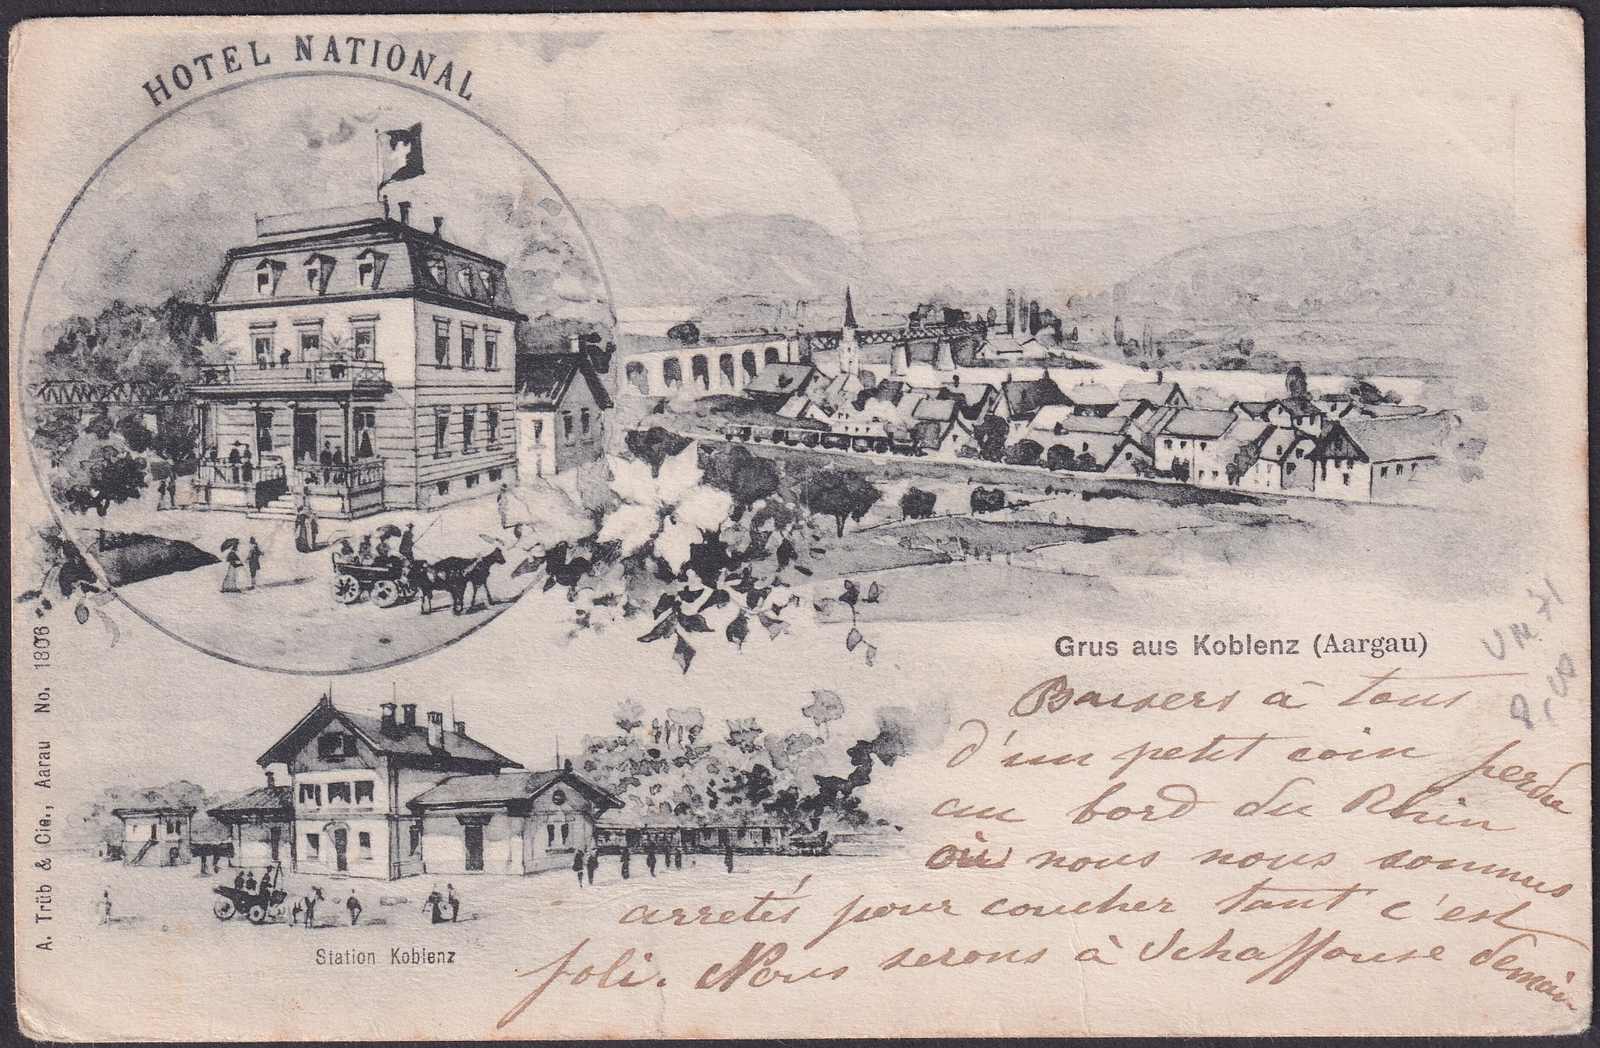 HOTEL NATIONAL
Grus aus Koblenz (Aargau)
Baisers à tous
d'un petit coin perdu
au bord du Rhin
où nous nous sommes
arretés pour coucher tant c'est
joli. Nous serons à Schaffouse demain
Station Koblenz
A. Trüb & Cie., Aarau No. 1806